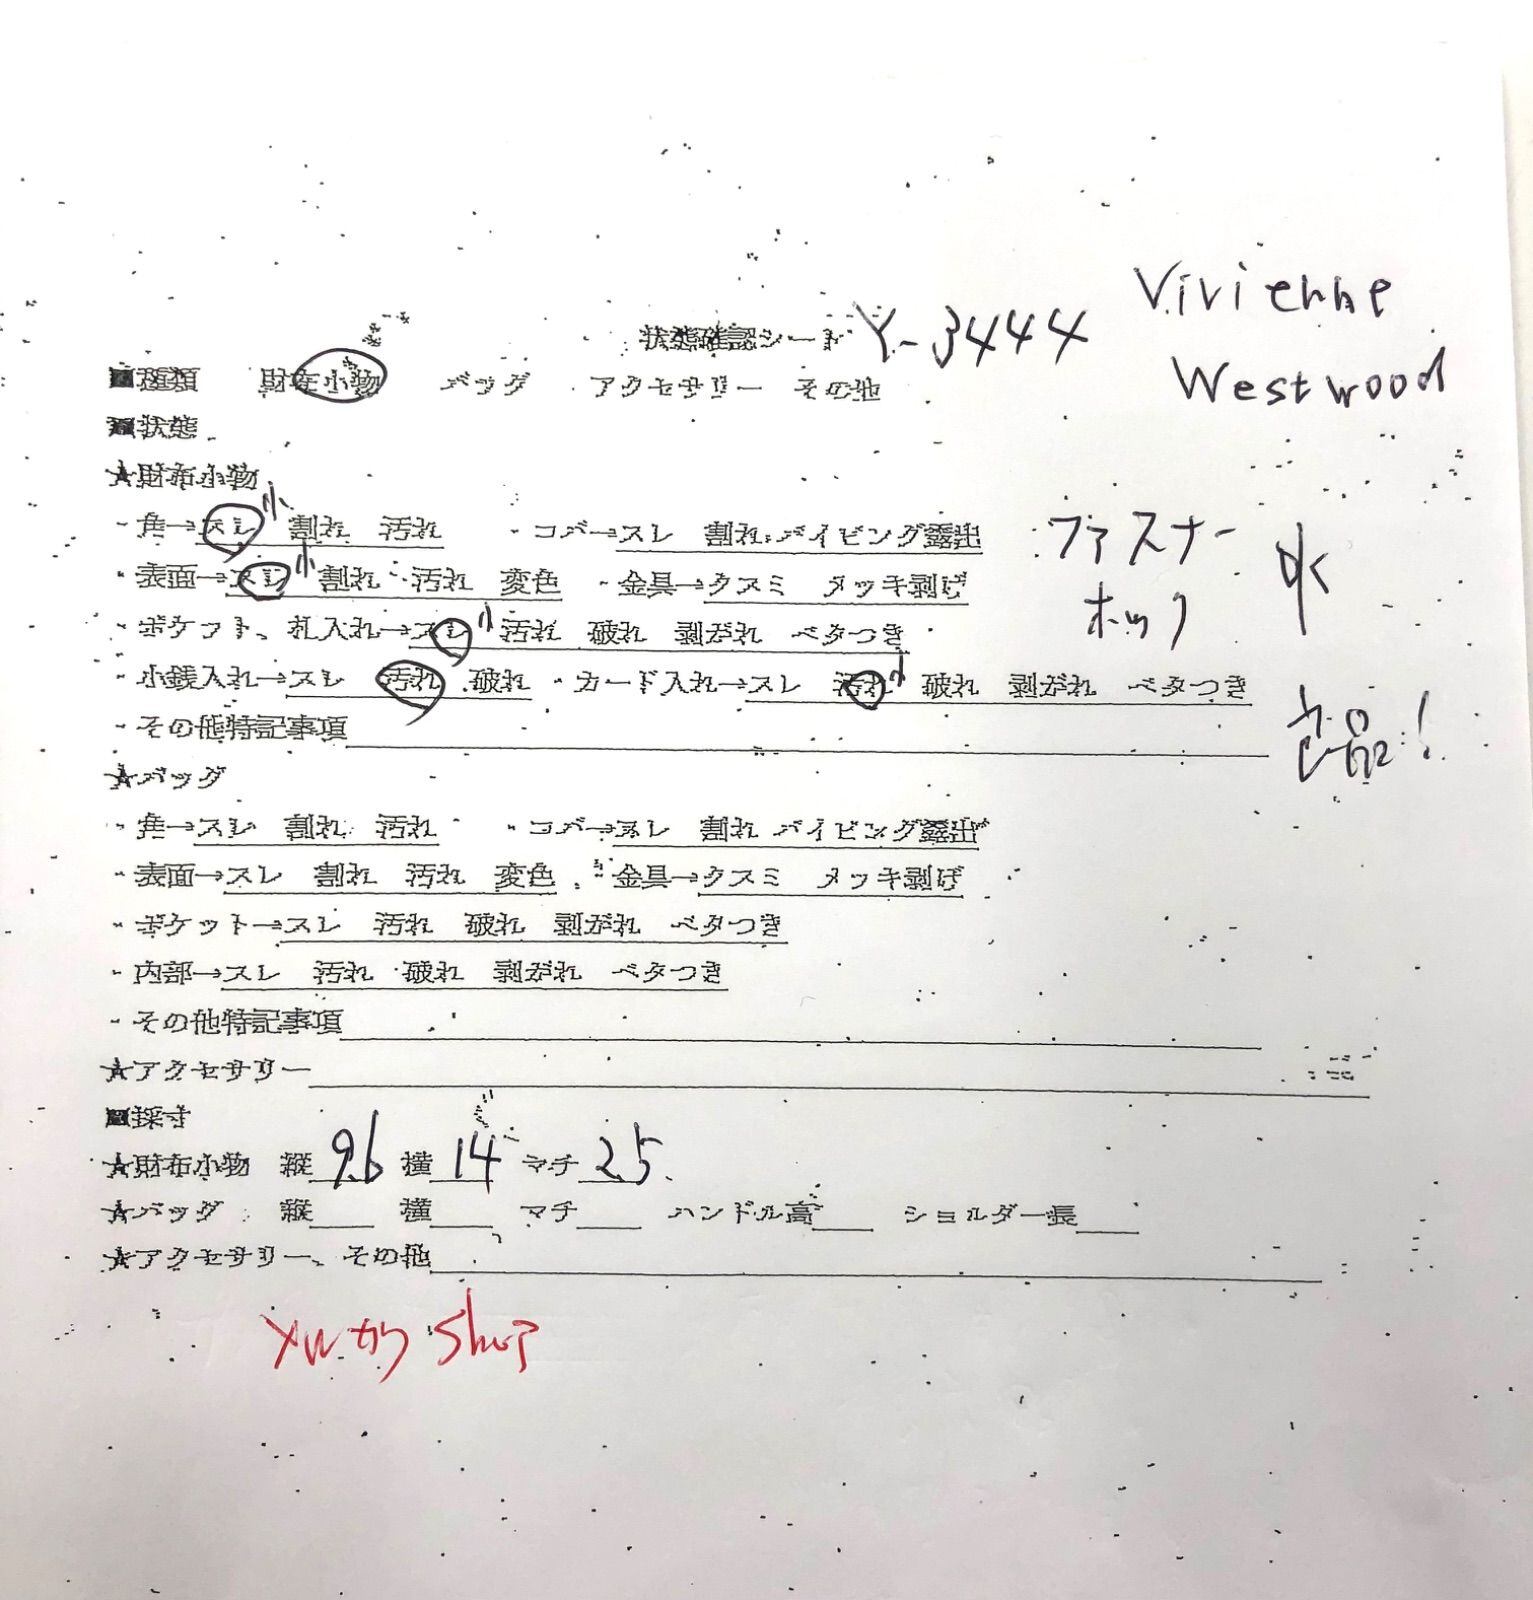 Vivienne
Westwood
状態確認シート Y-3444
■種類 財布小物 バッグ アクセサリー その他
■状態
★財布小物
・角→スレ小 割れ 汚れ ・コバ→スレ 割れ パイピング露出
・表面→スレ小 割れ 汚れ 変色 ・金具→クスミ メッキ剥げ
ファスナー
ホック
・ポケット、札入れ→スレ小 汚れ 破れ 剥がれ ベタつき
・小銭入れ→スレ 汚れ 破れ ・カード入れ→スレ 汚れ小 破れ 剥がれ ベタつき
・その他特記事項
★バッグ
・角→スレ 割れ 汚れ ・コバ→スレ 割れ パイピング露出
・表面→スレ 割れ 汚れ 変色 ・金具→クスミ メッキ剥げ
・ポケット→スレ 汚れ 破れ 剥がれ ベタつき
・内部→スレ 汚れ 破れ 剥がれ ベタつき
・その他特記事項
★アクセサリー
■採寸
★財布小物 縦 9.6 横 14 マチ 2.5
★バッグ 縦 横 マチ ハンドル高 ショルダー長
★アクセサリー、その他
shop